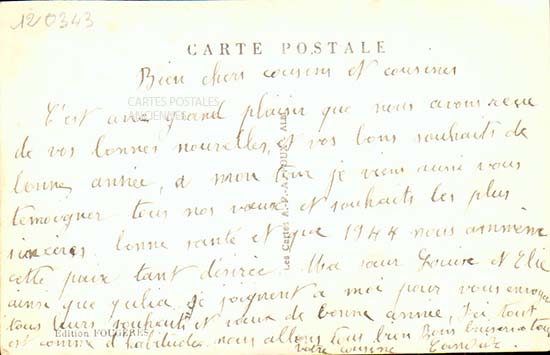 120343
CARTE POSTALE
Bien chers cousins et cousines
CARTES POSTALES
ANCIENNES
C'est avec grand plaisir que nous avons reçue
de vos bonnes nouvelles, et vos bons souhaits de
bonne année, a mon tour je viens aussi vous
temoigner tous nos vœux et souhaits les plus
sinceres bonne santé et que 1944 nous ammène
cette paix tant désirée. Ma sœur Louise et Elie
ainsi que Julia se joignent a moi pour vous envoyer
tous leurs souhaits et vœux de bonne année, Ici tout
est comme d'habitude nous allons tous bien Bons baisers a tous
votre cousine
Edition FOUGERES
Les Cartes A. P. A. POUX, Albi